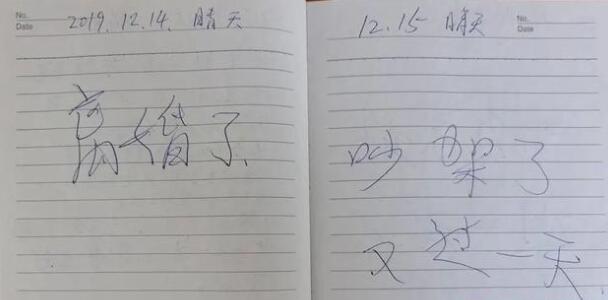 No.
Date
2019.12.14. 晴天
离婚了.
12.15 晴天
No.
Date
吵架了
又过一天